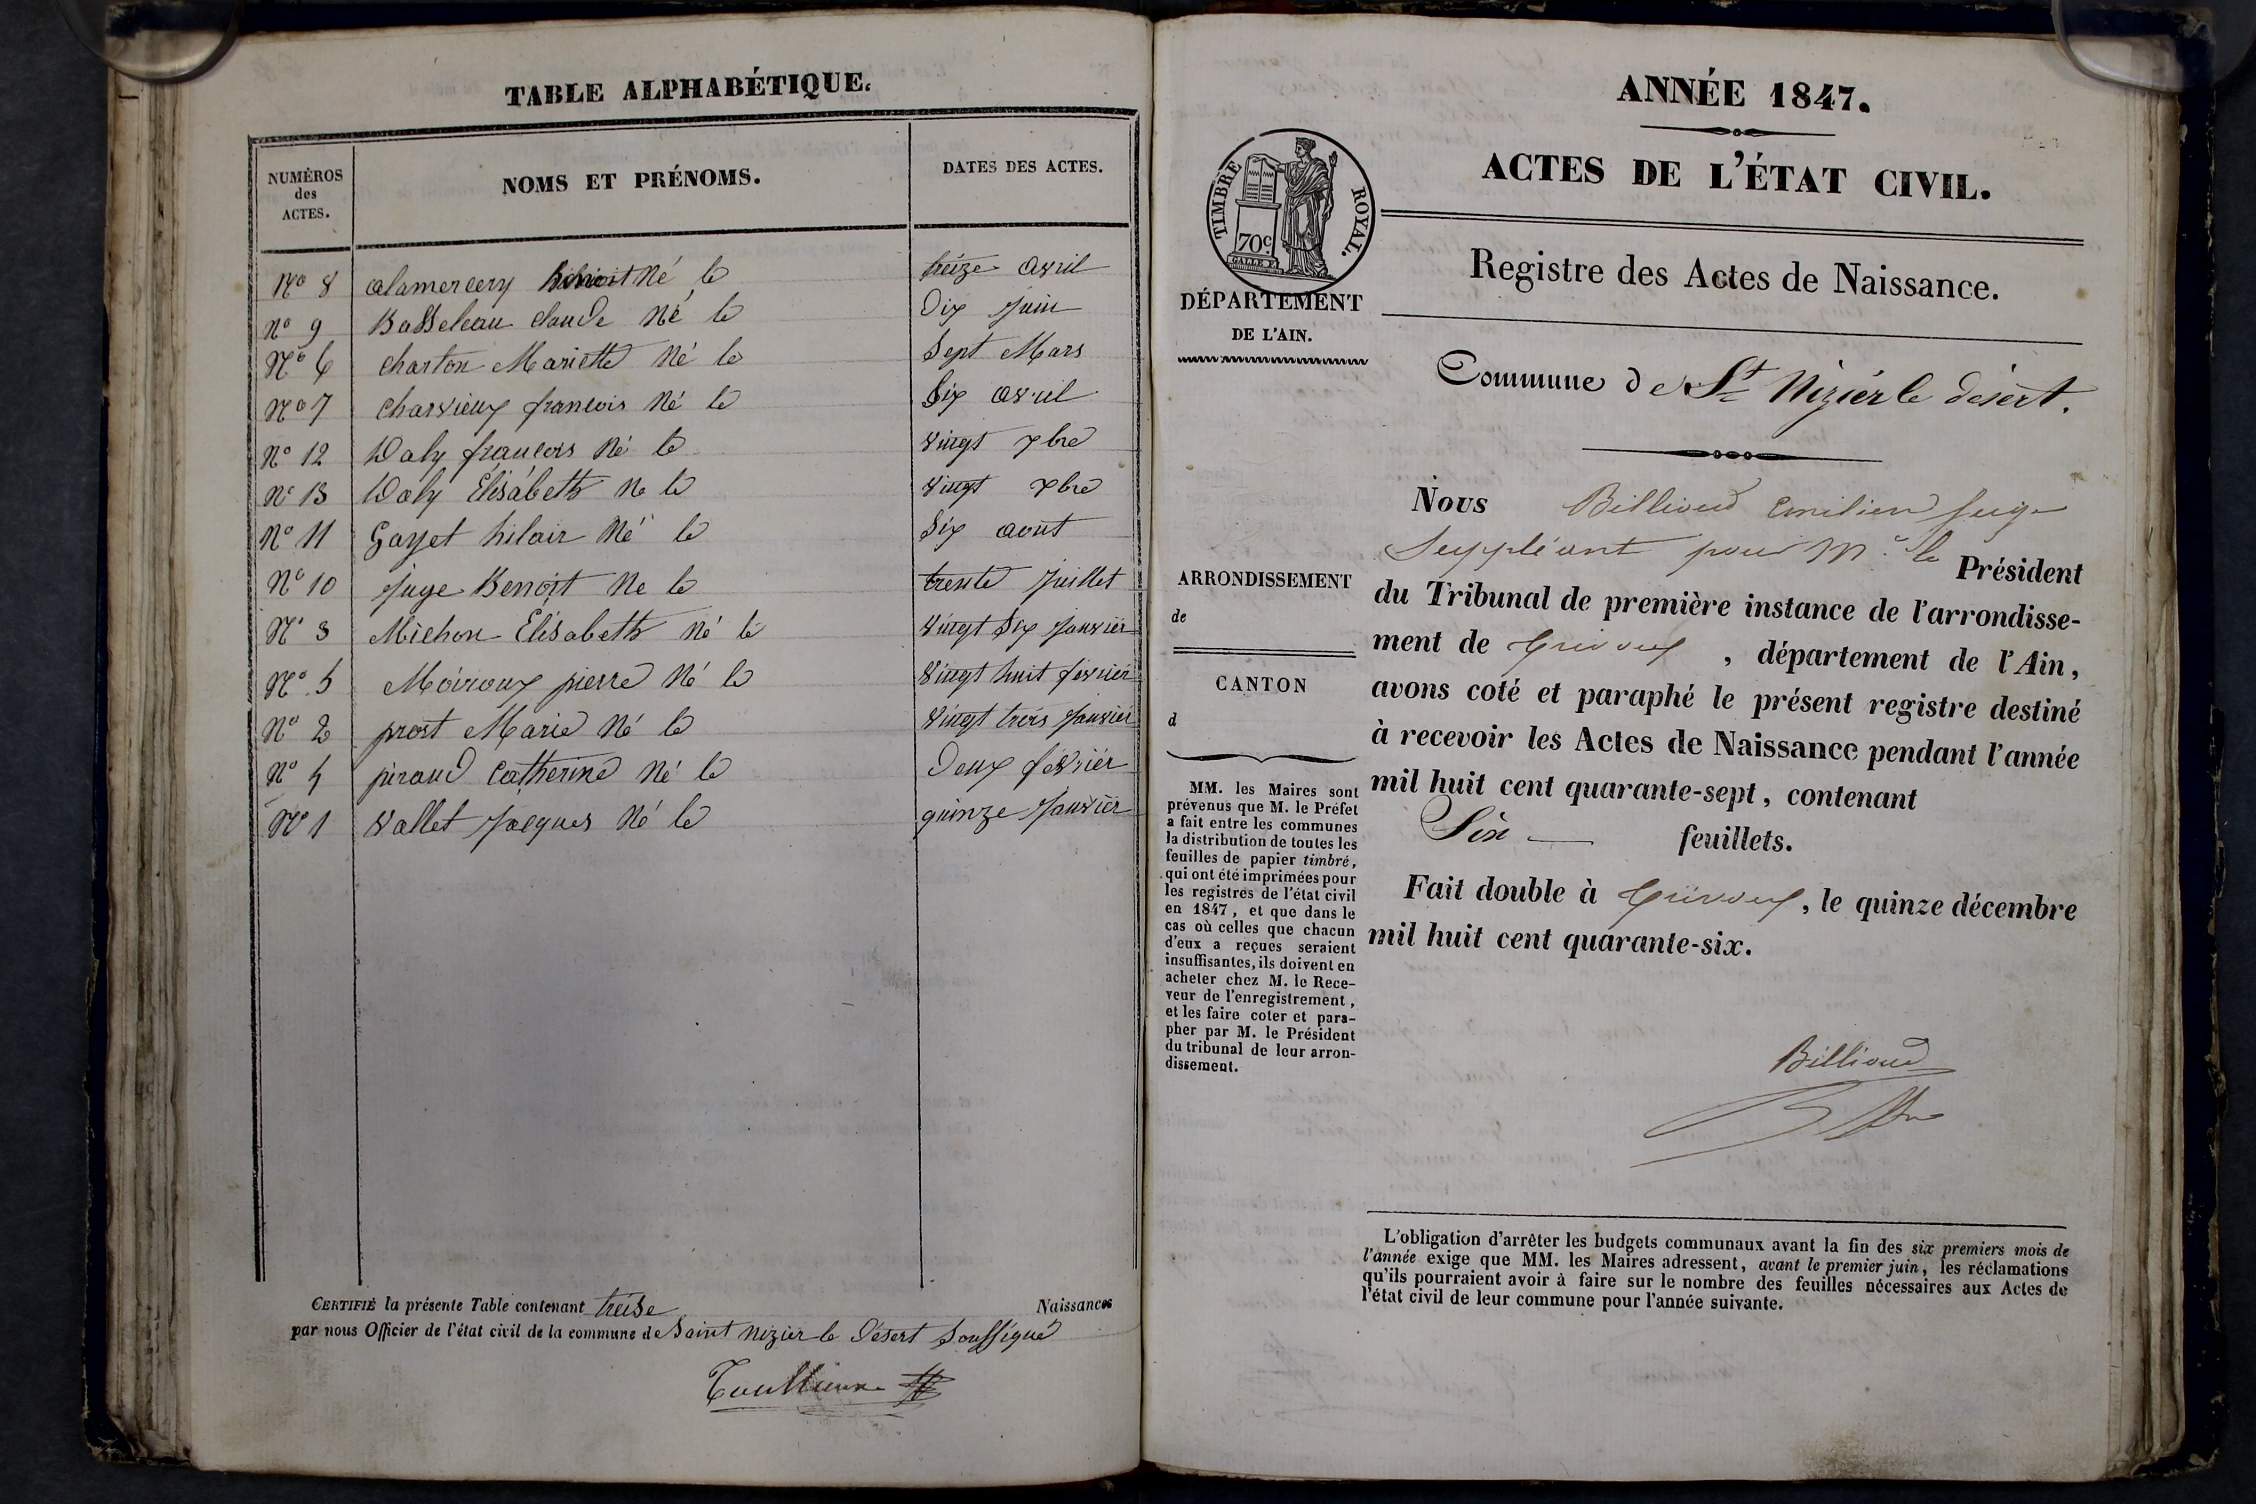 TABLE ALPHABÉTIQUE.
NUMÉROS des ACTES. NOMS ET PRÉNOMS. DATES DES ACTES.
No 8 alamercery Benoit Né le treize avril
No 9 Basseleau Claude Né le Dix Juin
No 6 charton Mariette Né le Sept Mars
No 7 charvieux francois Né le Six avril
No 12 Daly françois Né le vingt 7bre
No 13 Daly Elisabeth Ne le vingt 7bre
No 11 Gayet hilair Né le Six aout
No 10 Juge Benoit Ne le trente Juillet
No 3 Michon Elisabeth Né le vingt Six Janvier
No 5 Moiroux pierre Né le vingt huit fevrier
No 2 prost Marie Né le vingt trois Janvier
No 4 piraud Catherine Né le Deux fevrier
No 1 vallet Jacques Né le quinze Janvier
CERTIFIÉ la présente Table contenant treise Naissances
par nous Officier de l'état civil de la commune de Saint Nizier le Désert Soussigné
ANNÉE 1847.
ACTES DE L'ÉTAT CIVIL.
TIMBRE ROYAL.
70c
DÉPARTEMENT
DE L'AIN.
Registre des Actes de Naissance.
Commune de St Nizier le désert.
Nous Billioud Emilien Juge
Suppléant pour Mr le Président
du Tribunal de première instance de l'arrondisse-
ment de Trévoux, département de l'Ain,
avons coté et paraphé le présent registre destiné
à recevoir les Actes de Naissance pendant l'année
mil huit cent quarante-sept, contenant
Six feuillets.
Fait double à Trévoux, le quinze décembre
mil huit cent quarante-six.
Billioud
ARRONDISSEMENT
de
CANTON
d
MM. les Maires sont
prévenus que M. le Préfet
a fait entre les communes
la distribution de toutes les
feuilles de papier timbré,
qui ont été imprimées pour
les registres de l'état civil
en 1847, et que dans le
cas où celles que chacun
d'eux a reçues seraient
insuffisantes, ils doivent en
acheter chez M. le Rece-
veur de l'enregistrement,
et les faire coter et para-
pher par M. le Président
du tribunal de leur arron-
dissement.
L'obligation d'arrêter les budgets communaux avant la fin des six premiers mois de
l'année exige que MM. les Maires adressent, avant le premier juin, les réclamations
qu'ils pourraient avoir à faire sur le nombre des feuilles nécessaires aux Actes de
l'état civil de leur commune pour l'année suivante.